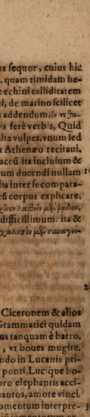 us sequor, cuius hic
, quam timidam ha-
echini calliditatem
d, de marino scilicet
addendum
s ferè verbis, Quid
lia vulpes, vnum led
t Athenæo recitaui,
acro ita inclusum &
um ducendi nullam
lia inter se compara-
si corpus explicare,
difficillimum: ita &
Ciceronem & alios
Grammatici quidam
us tanquam è barro,
, vt boues mugire.
ndo in Lucanis pri-
ponti. Luc que bo-
ore elephantis acci-
autos, amore vinci
omentum interpre-